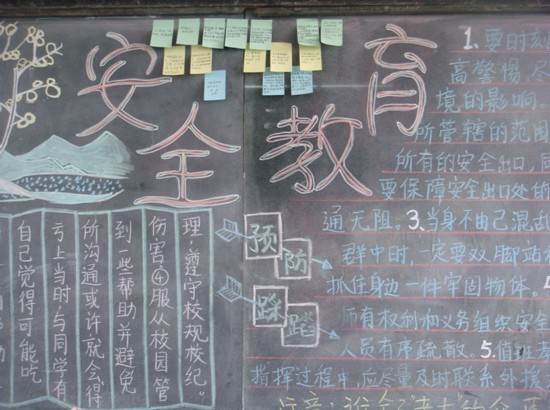 安全教育
自己觉得可能吃
亏上当时与同学有
所沟通或许就会得
到一些帮助并避免
伤害④服从校园管
理,遵守校规校纪。
预防
踩踏
1.要时刻
高警惕,尽
境的影响。
所管辖的范围
所有的安全出口,同
要保障安全出口处的
通无阻。3.当身不由己混乱
群中时,一定要双脚站
抓住身边一件牢固物体。
所有权利和义务组织安全
人员有序疏散。5.值
指挥过程中,应尽量及时联系外援